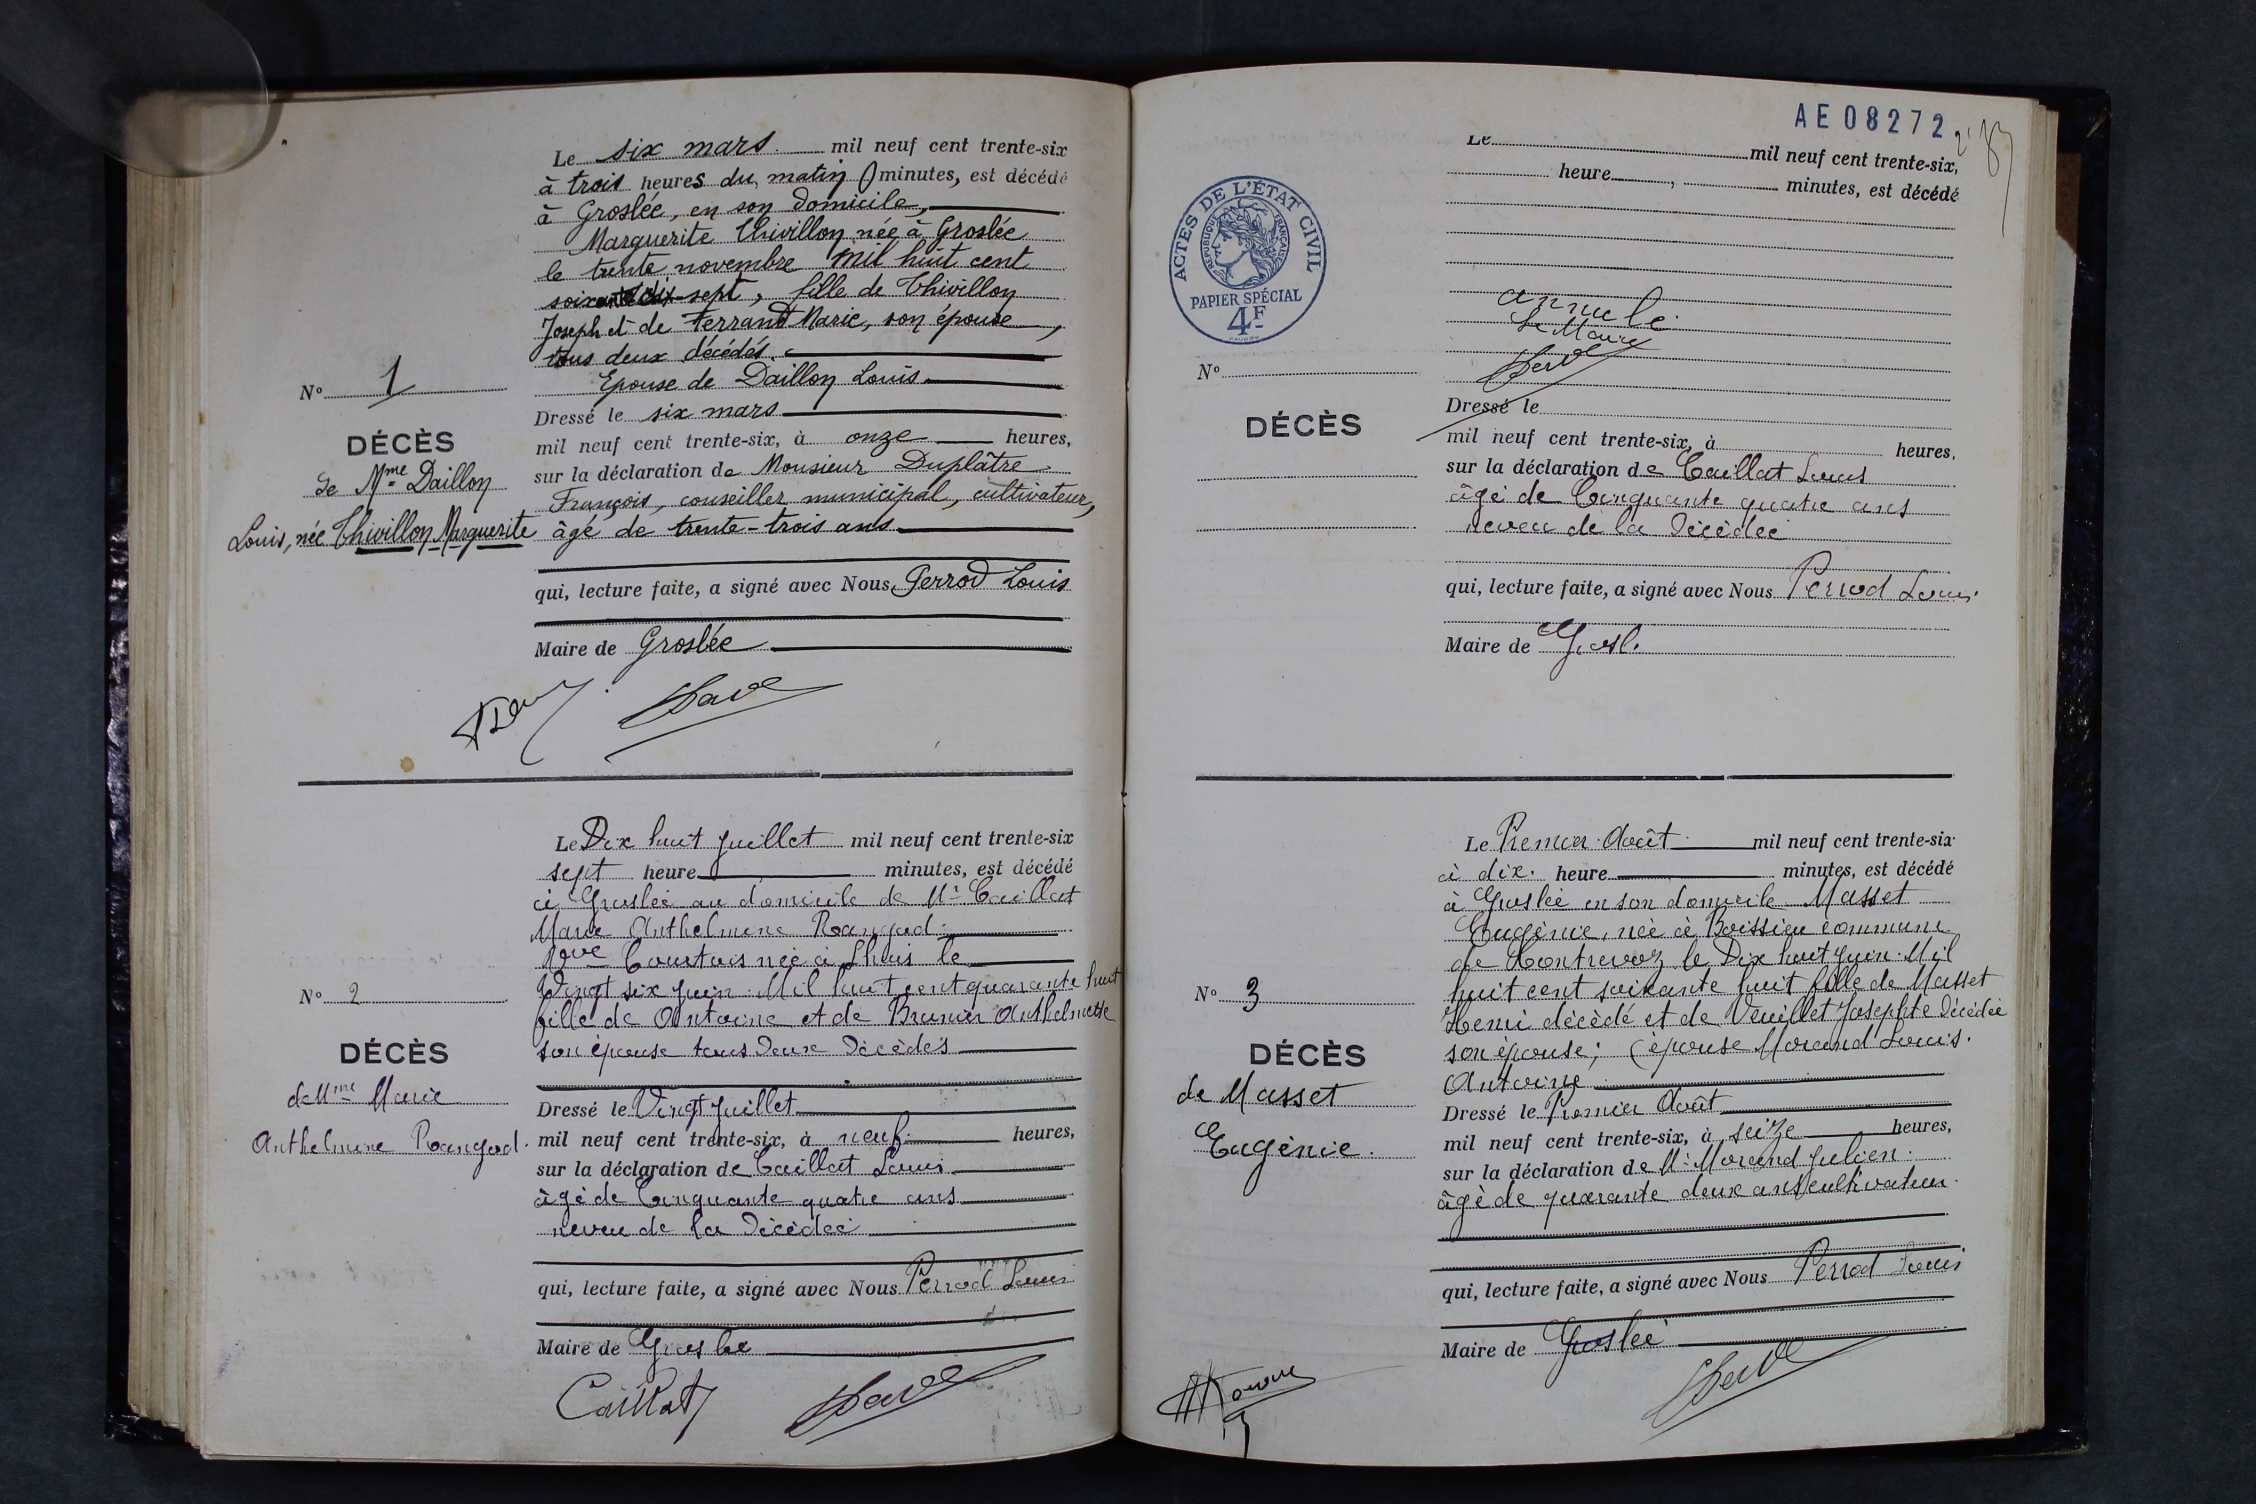 Le six mars mil neuf cent trente-six
à trois heures du matin 0 minutes, est décédé
à Groslée, en son domicile,
Marguerite Thivillon née à Groslée
le trente novembre mil huit cent
soixante dix-sept, fille de Thivillon
Joseph et de Ferrand Marie, son épouse,
tous deux décédés.
Epouse de Daillon Louis
Dressé le six mars
mil neuf cent trente-six, à onze heures,
sur la déclaration de Monsieur Duplâtre
François, conseiller municipal, cultivateur,
âgé de trente-trois ans
qui, lecture faite, a signé avec Nous, Perrod Louis
Maire de Groslée
N° 1
DÉCÈS
de Mme Daillon
Louis, née Thivillon Marguerite
Le Dix huit juillet mil neuf cent trente-six
sept heure minutes, est décédé
à Groslée au domicile de Mr Caillat
Marie Anthelmine Rangod
Vve Courtois née à Lhuis le
Vingt six juin Mil huit cent quarante huit
fille de Antoine et de Brunier Anthelmette
son épouse tous deux décédés
Dressé le Vingt juillet
mil neuf cent trente-six, à neuf heures,
sur la déclaration de Caillat Louis
âgé de Cinquante quatre ans
neveu de la décédée
qui, lecture faite, a signé avec Nous Perrod Louis
Maire de Groslée
Caillat
N° 2
DÉCÈS
de Mme Marie
Anthelmine Rangod.
AE 08272
ACTES DE L'ÉTAT CIVIL
RÉPUBLIQUE FRANÇAISE
PAPIER SPÉCIAL
4F
Le mil neuf cent trente-six,
heure , minutes, est décédé
annulé
Le Maire
Dressé le
mil neuf cent trente-six, à heures,
sur la déclaration de Caillat Louis
âgé de Cinquante quatre ans
neveu de la décédée
qui, lecture faite, a signé avec Nous Perrod Louis
Maire de Grosl.
N°
DÉCÈS
Le Premier Août mil neuf cent trente-six
à dix. heure minutes, est décédé
à Groslée en son domicile Masset
Eugénie, née à Boissieu commune
de Contrevoz le Dix huit juin Mil
huit cent soixante huit fille de Masset
Henri décédé et de Veuillet Josephte décédée
son épouse; (épouse Morand Louis.
Antoine
Dressé le Premier Août
mil neuf cent trente-six, à seize heures,
sur la déclaration de Mr Morand Julien.
âgé de quarante deux ans cultivateur.
qui, lecture faite, a signé avec Nous Perrod Louis
Maire de Groslée
N° 3
DÉCÈS
de Masset
Eugénie.